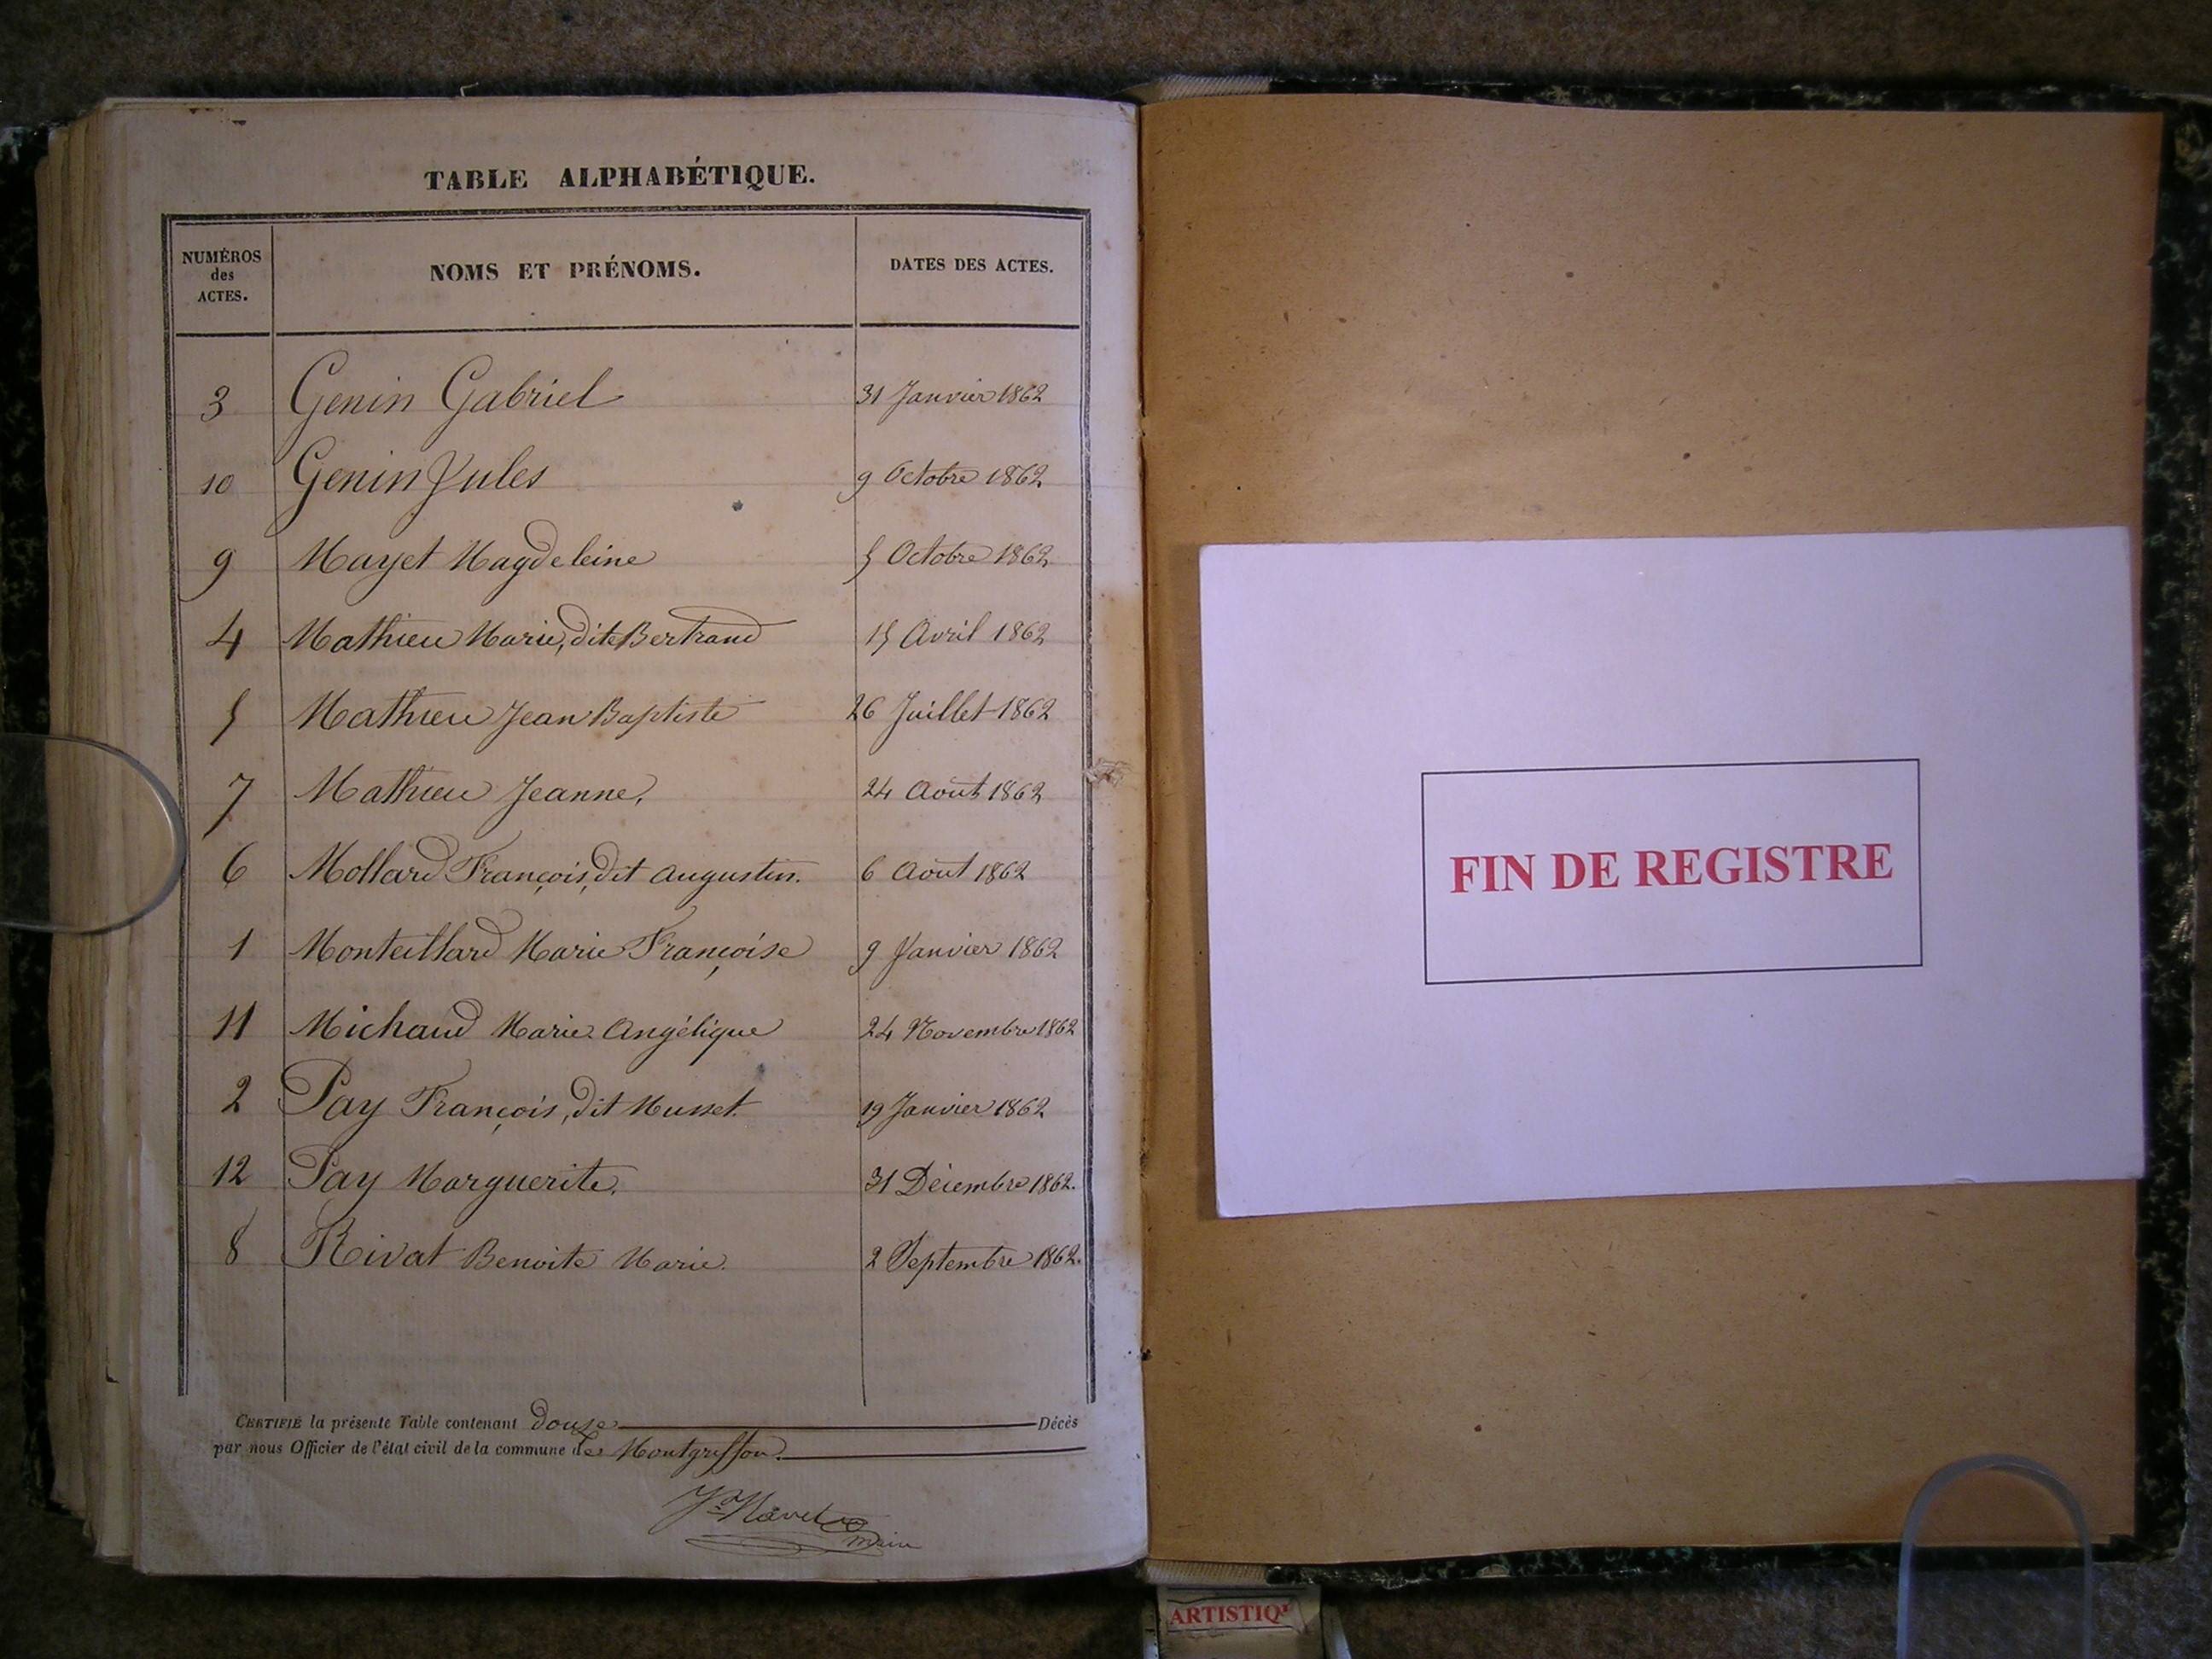 TABLE ALPHABÉTIQUE.
NUMÉROS des ACTES. NOMS ET PRÉNOMS. DATES DES ACTES.
3 Genin Gabriel 31 Janvier 1862
10 Genin Jules 9 Octobre 1862
9 Mayet Magdeleine 5 Octobre 1862
4 Mathieu Marie, dite Bertrand 15 Avril 1862
5 Mathieu Jean Baptiste 26 Juillet 1862
7 Mathieu Jeanne, 24 Août 1862
6 Mollard François, dit Augustin. 6 Août 1862
1 Monteillard Marie Françoise 9 Janvier 1862
11 Michaud Marie Angélique 24 Novembre 1862
2 Pay François, dit Musset 19 Janvier 1862
12 Pay Marguerite. 31 Décembre 1862.
8 Rivat Benoite Marie. 2 Septembre 1862.
CERTIFIÉ la présente Table contenant douze Décès
par nous Officier de l'état civil de la commune de Montgriffon.
maire
FIN DE REGISTRE